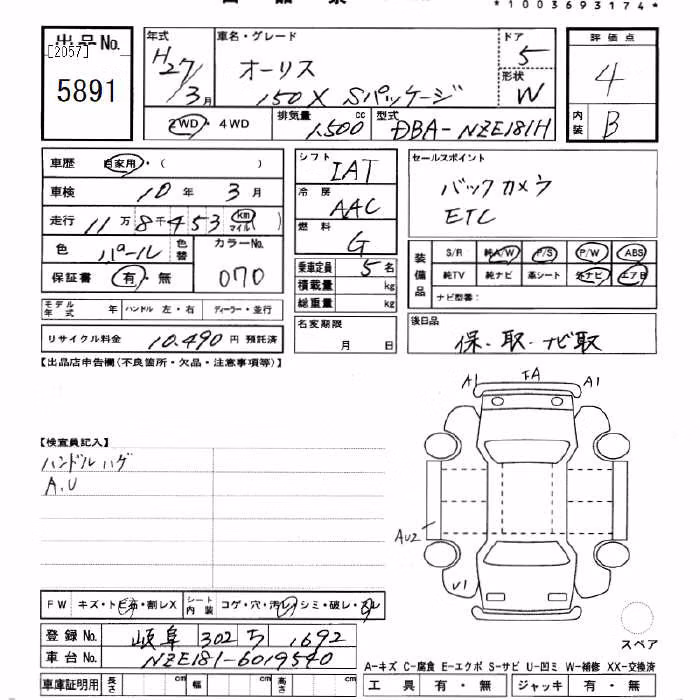 *1003693174*
出品No.
[2057]
5891
年式
H27/3月
車名・グレード
オーリス
150X Sパッケージ
ドア
5
形状
W
評価点
4
内装
B
2WD・4WD
排気量
1,500 cc
型式
DBA-NZE181H
車歴 自家用・( )
車検 10年 3月
走行 11万8千453 (km マイル)
色 パール 色替
カラーNo.
070
保証書 有・無
モデル年式 年 ハンドル 左・右 ディーラー・並行
リサイクル料金 10,490円 預託済
シフト
IAT
冷房
AAC
燃料
G
乗車定員 5名
積載量 kg
総重量 kg
名変期限
月 日
セールスポイント
バックカメラ
ETC
装備品
S/R 純A/W P/S P/W ABS
純TV 純ナビ 革シート 外ナビ エアB
ナビ型番:
後日品
保・取・ナビ取
【出品店申告欄(不良箇所・欠品・注意事項等)】
A1 FA A1
【検査員記入】
ハンドルハゲ
A.U
AU2
U1
FW キズ・トビ石・割レX シート内装 コゲ・穴・汚レ・シミ・破レ・スレ
登録No. 岐阜 302 ち 1692
車台No. NZE181-6019540
車庫証明用 長さ cm 幅 cm 高さ cm
スペア
A-キズ C-腐食 E-エクボ S-サビ U-凹ミ W-補修 XX-交換済
工具 有・無 ジャッキ 有・無